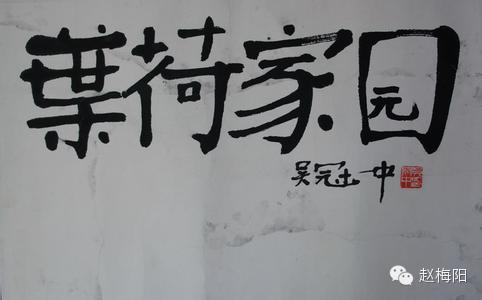 葉荷家园
吴冠中
赵梅阳